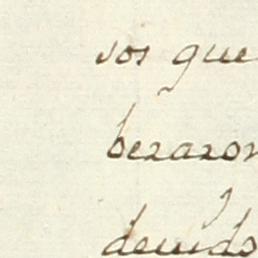 sos que
bezazon
deuido